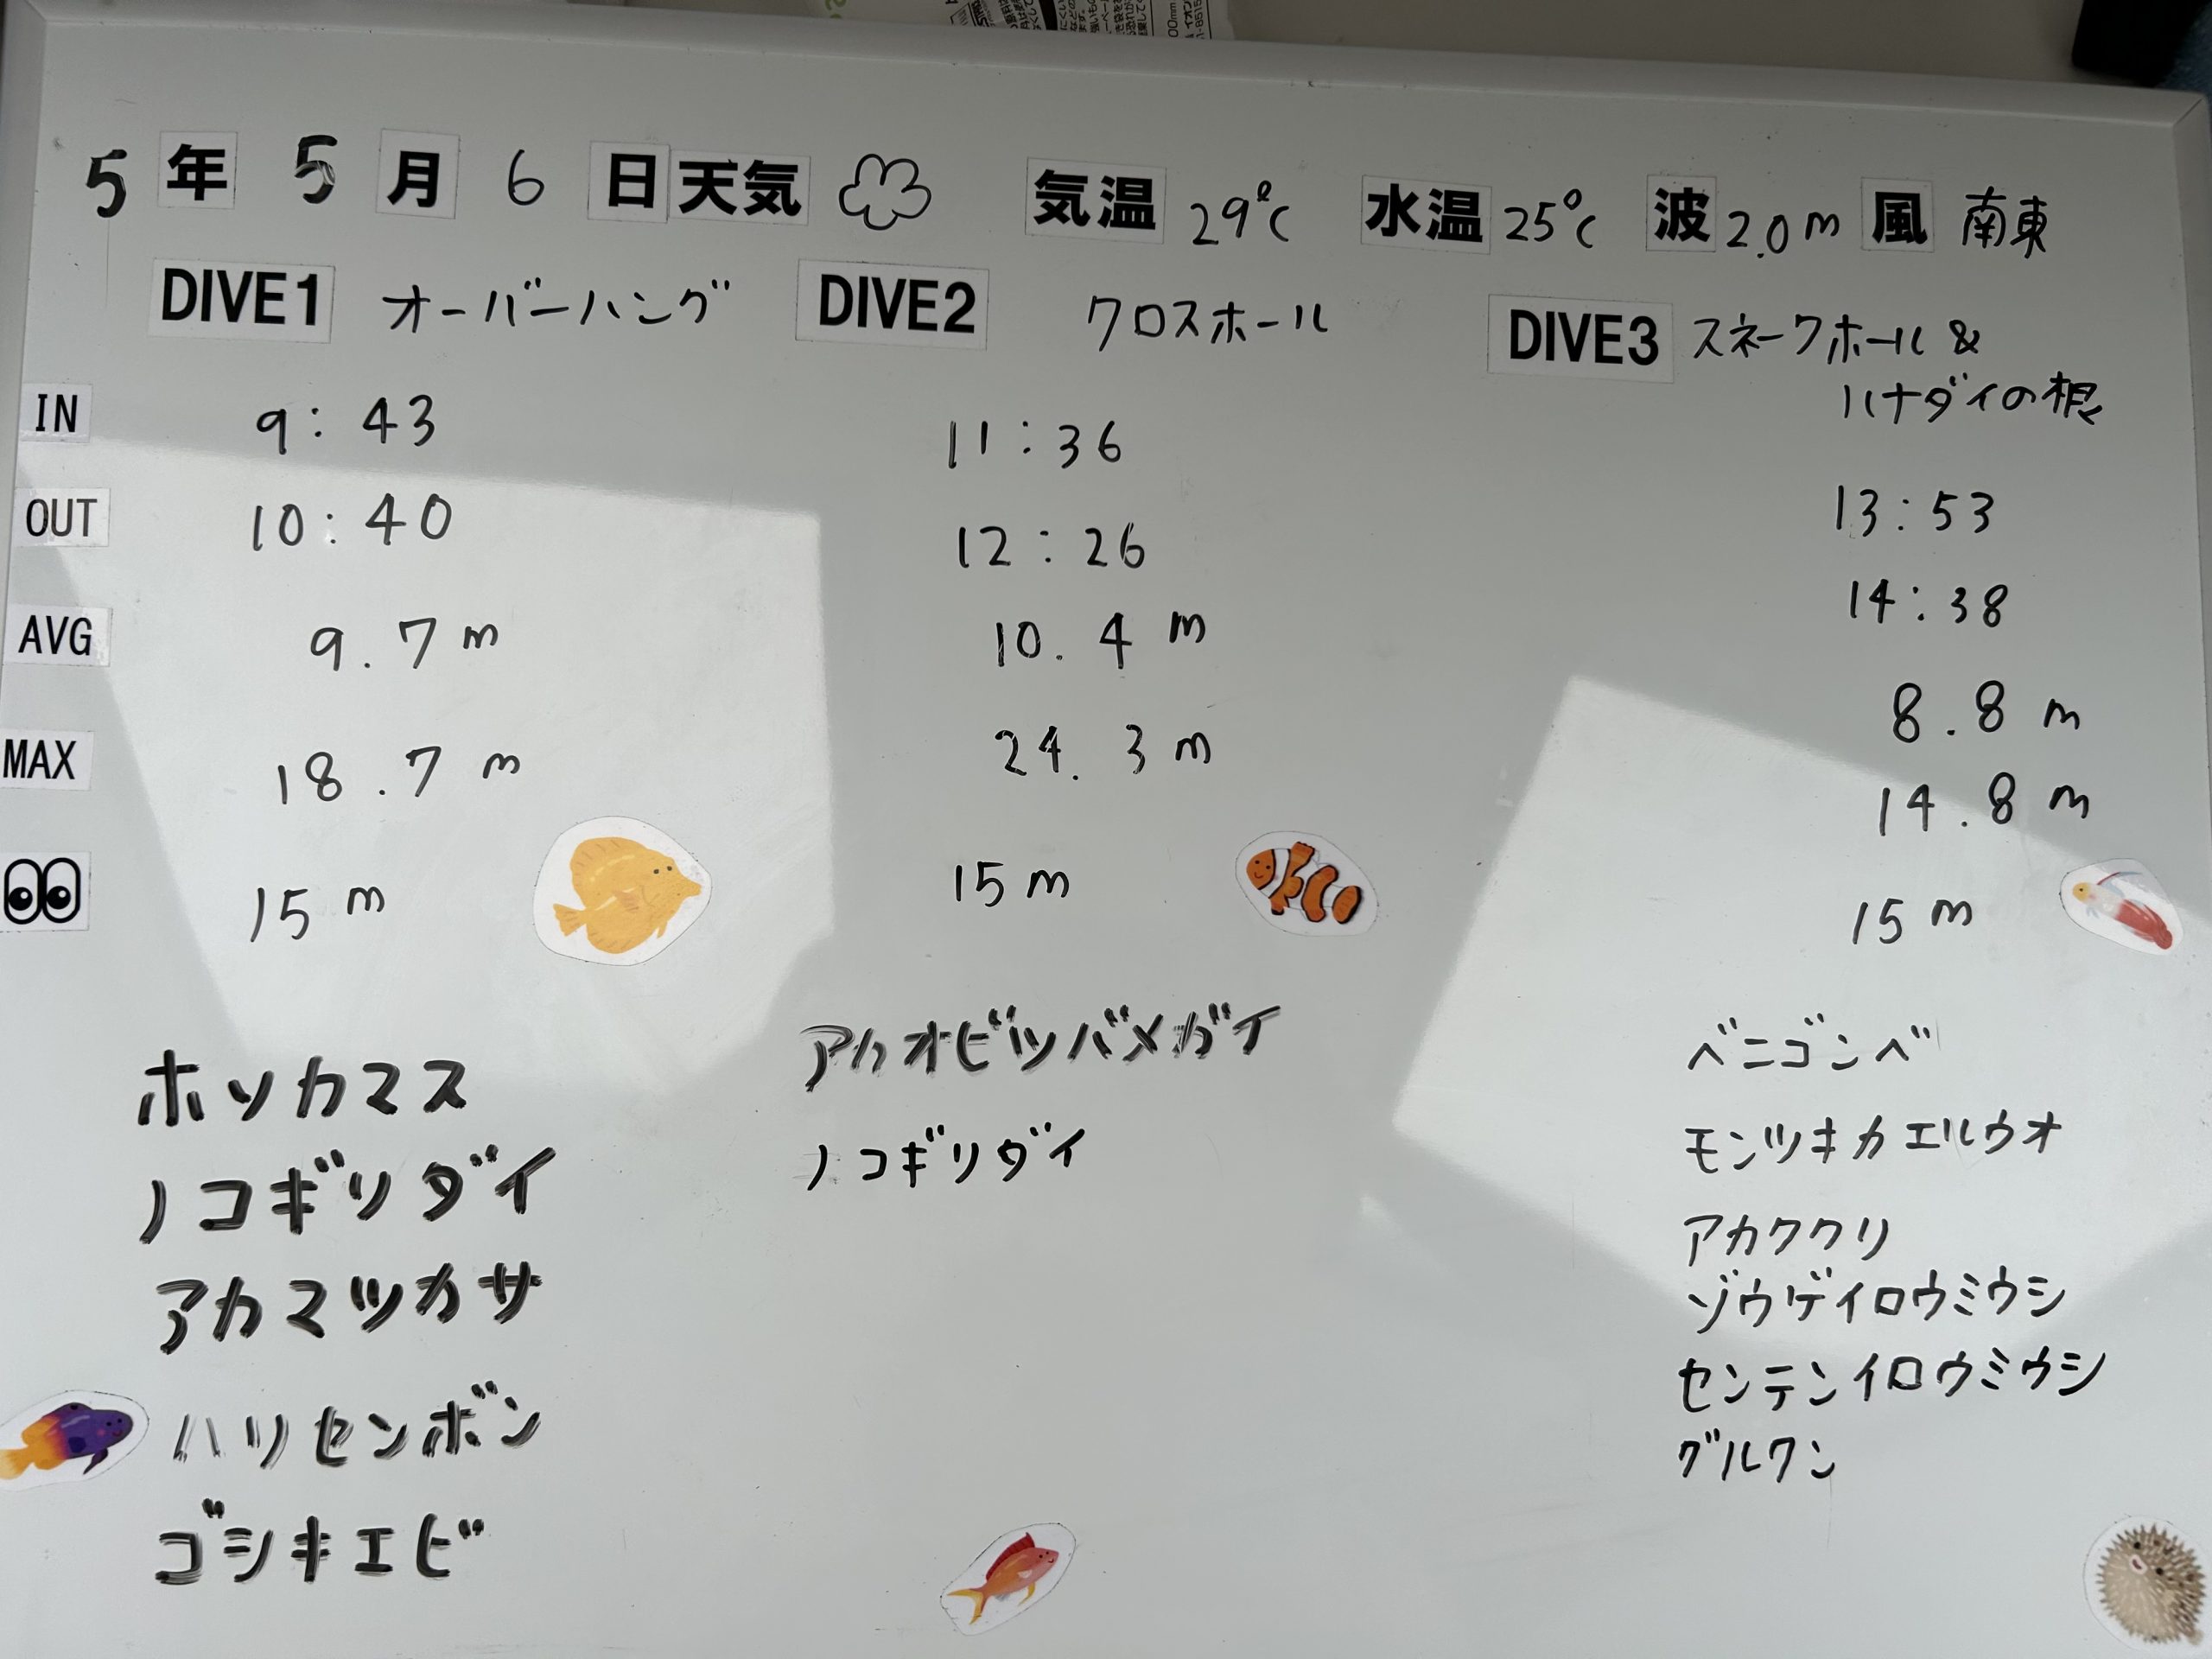 5 年 5 月 6 日 天気 気温 29℃ 水温 25℃ 波 2.0m 風 南東
DIVE1 オーバーハング DIVE2 クロスホール DIVE3 スネークホール &
ハナダイの根
IN 9:43 11:36 13:53
OUT 10:40 12:26 14:38
AVG 9.7m 10.4m 8.8m
MAX 18.7m 24.3m 14.8m
15m 15m 15m
ホソカマス
ノコギリダイ
アカマツカサ
ハリセンボン
ゴシキエビ
アカオビツバメガイ
ノコギリダイ
ベニゴンベ
モンツキカエルウオ
アカククリ
ゾウゲイロウミウシ
センテンイロウミウシ
グルクン